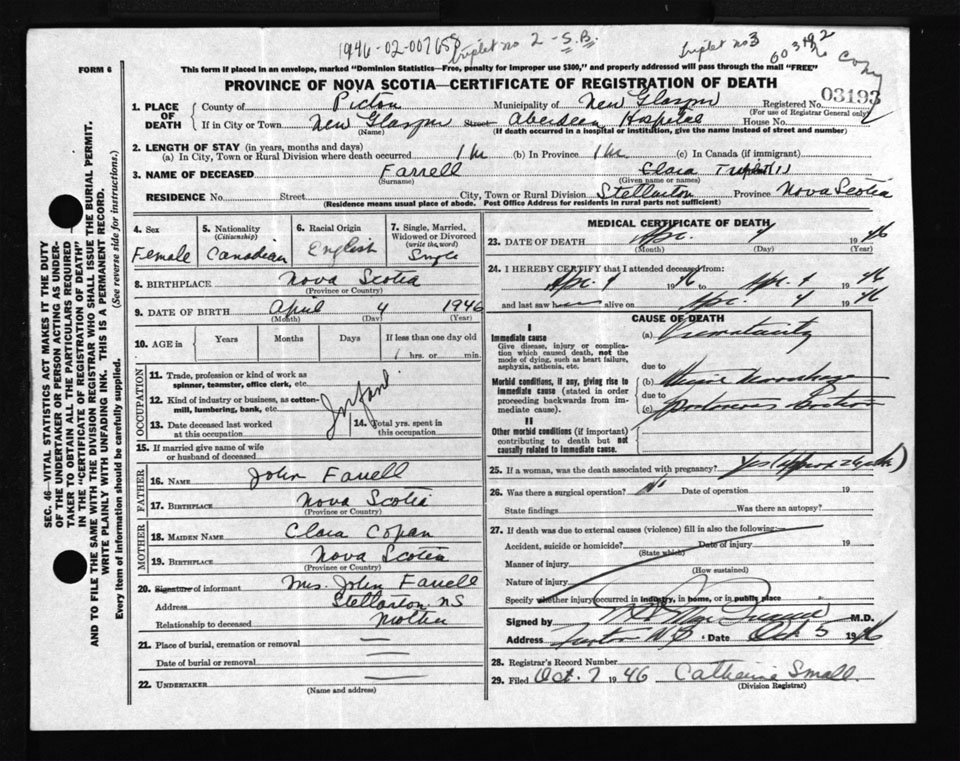 1946-02-007658 triplet no 2 - S.B. triplet no 3 603492
no copy
FORM 6 This form if placed in an envelope, marked "Dominion Statistics—Free, penalty for improper use $300," and properly addressed will pass through the mail "FREE"
PROVINCE OF NOVA SCOTIA—CERTIFICATE OF REGISTRATION OF DEATH
03193
1. PLACE OF DEATH
County of Pictou Municipality of New Glasgow Registered No.
(For use of Registrar General only)
If in City or Town New Glasgow Street Aberdeen Hospital House No.
(Name) (If death occurred in a hospital or institution, give the name instead of street and number)
2. LENGTH OF STAY (in years, months and days)
(a) In City, Town or Rural Division where death occurred 1 hr (b) In Province 1 hr (c) In Canada (if immigrant)
3. NAME OF DECEASED Farrell Clara Triplet (1)
(Surname) (Given name or names)
RESIDENCE No. Street City, Town or Rural Division Stellarton Province Nova Scotia
(Residence means usual place of abode. Post Office Address for residents in rural parts not sufficient)
4. Sex 5. Nationality (Citizenship) 6. Racial Origin 7. Single, Married, Widowed or Divorced (write the word)
Female Canadian English Single
8. BIRTHPLACE Nova Scotia
(Province or Country)
9. DATE OF BIRTH April 4 1946
(Month) (Day) (Year)
10. AGE in Years Months Days If less than one day old
1 hrs. or min.
OCCUPATION
11. Trade, profession or kind of work as spinner, teamster, office clerk, etc.
12. Kind of industry or business, as cotton-mill, lumbering, bank, etc.
Infant
13. Date deceased last worked at this occupation 14. Total yrs. spent in this occupation
15. If married give name of wife or husband of deceased
FATHER
16. NAME John Farrell
17. BIRTHPLACE Nova Scotia
(Province or Country)
MOTHER
18. MAIDEN NAME Clara Copan
19. BIRTHPLACE Nova Scotia
(Province or Country)
20. Signature of informant Mrs. John Farrell
Address Stellarton NS
Relationship to deceased Mother
21. Place of burial, cremation or removal
Date of burial or removal
22. UNDERTAKER
(Name and address)
MEDICAL CERTIFICATE OF DEATH
23. DATE OF DEATH Apr. 4 1946
(Month) (Day) (Year)
24. I HEREBY CERTIFY that I attended deceased from:
Apr. 4 1946 to Apr. 4 1946
and last saw her alive on Apr. 4 1946
CAUSE OF DEATH
I
Immediate cause (a) Prematurity
Give disease, injury or complication which caused death, not the mode of dying, such as heart failure, asphyxia, asthenia, etc.
due to
Morbid conditions, if any, giving rise to immediate cause (stated in order proceeding backwards from immediate cause).
(b)
due to
(c)
II
Other morbid conditions (if important) contributing to death but not causally related to immediate cause.
25. If a woman, was the death associated with pregnancy? Yes
26. Was there a surgical operation? No Date of operation 19
State findings Was there an autopsy?
27. If death was due to external causes (violence) fill in also the following:
Accident, suicide or homicide? Date of injury 19
(State which)
Manner of injury
(How sustained)
Nature of injury
Specify whether injury occurred in industry, in home, or in public place
Signed by M.D.
Address Date Oct 5 1946
28. Registrar's Record Number
29. Filed Oct. 7 1946 Catherine Small
(Division Registrar)
SEC. 46—VITAL STATISTICS ACT MAKES IT THE DUTY
OF THE UNDERTAKER OR PERSON ACTING AS UNDER-
TAKER TO OBTAIN ALL THE PARTICULARS REQUIRED
IN THE "CERTIFICATE OF REGISTRATION OF DEATH"
AND TO FILE THE SAME WITH THE DIVISION REGISTRAR WHO SHALL ISSUE THE BURIAL PERMIT.
WRITE PLAINLY WITH UNFADING INK. THIS IS A PERMANENT RECORD.
Every item of information should be carefully supplied. (See reverse side for instructions.)